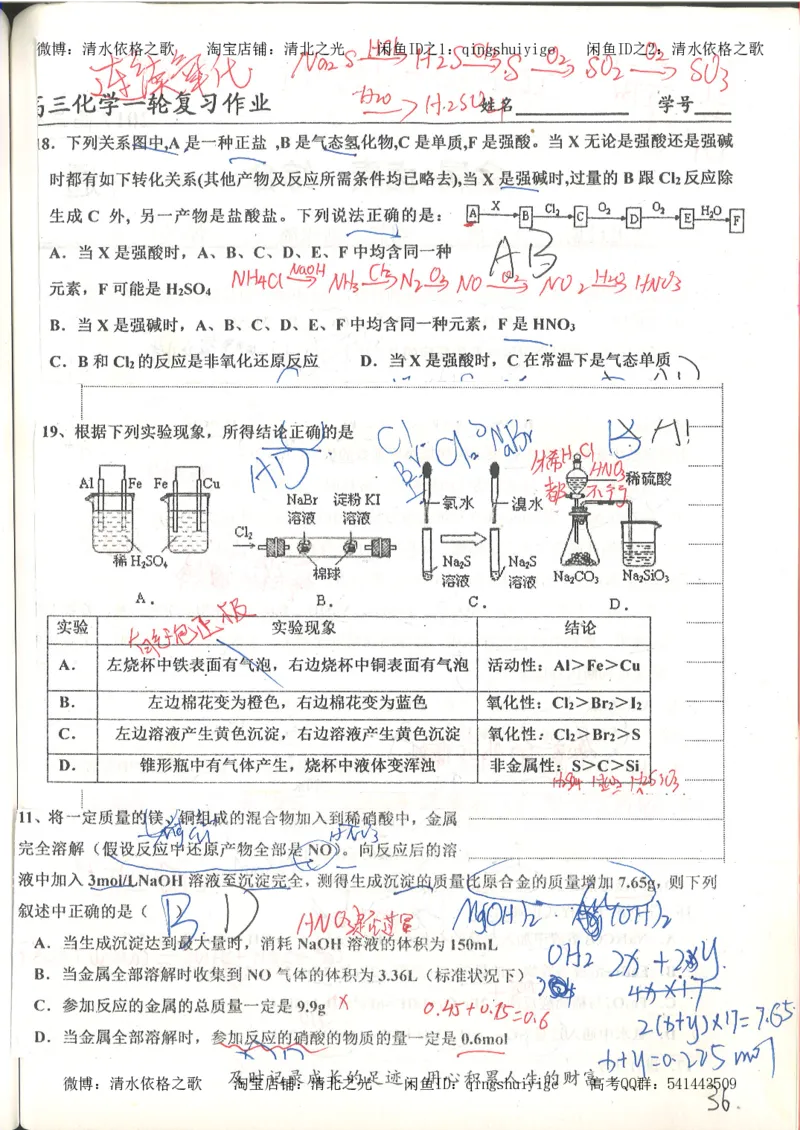 微博：清水依格之歌 淘宝店铺：清北之光 闲鱼ID之1：qingshuiyige 闲鱼ID之2：清水依格之歌
连续氧化 Na2S →HCl H2S →O2 S →O2 SO2 →O2 SO3
→H2O H2SO4
高三化学一轮复习作业 姓名 学号
18．下列关系图中,A 是一种正盐 ,B 是气态氢化物,C 是单质,F 是强酸。当 X 无论是强酸还是强碱
时都有如下转化关系(其他产物及反应所需条件均已略去),当 X 是强碱时,过量的 B 跟 Cl2 反应除
生成 C 外, 另一产物是盐酸盐。下列说法正确的是： A →X B →Cl2 C →O2 D →O2 E →H2O F
A．当 X 是强酸时，A、B、C、D、E、F 中均含同一种 AB
元素，F 可能是 H2SO4 NH4Cl →NaOH NH3 →Cl2 N2 →O2 NO →O2 NO2 →H2O HNO3
B．当 X 是强碱时，A、B、C、D、E、F 中均含同一种元素，F 是 HNO3
C．B 和 Cl2 的反应是非氧化还原反应 D．当 X 是强酸时，C 在常温下是气态单质
19、根据下列实验现象，所得结论正确的是
AD Cl Br I Cl2 NaBr
Al Fe Fe Cu
稀H2SO4
A．
Cl2 NaBr 溶液 淀粉 KI 溶液
棉球
B．
氯水 溴水
Na2S 溶液 Na2S 溶液
C．
稀硫酸
HCl HNO3 都不行
Na2CO3 Na2SiO3
D．
实验 实验现象 结论
A． 左烧杯中铁表面有气泡，右边烧杯中铜表面有气泡 活动性：Al＞Fe＞Cu
B． 左边棉花变为橙色，右边棉花变为蓝色 氧化性：Cl2＞Br2＞I2
C． 左边溶液产生黄色沉淀，右边溶液产生黄色沉淀 氧化性：Cl2＞Br2＞S
D． 锥形瓶中有气体产生，烧杯中液体变浑浊 非金属性：S＞C＞Si
11、将一定质量的镁、铜组成的混合物加入到稀硝酸中，金属
完全溶解（假设反应中还原产物全部是 NO）。向反应后的溶
液中加入 3mol/LNaOH 溶液至沉淀完全，测得生成沉淀的质量比原合金的质量增加 7.65g，则下列
叙述中正确的是（ ） BD
A．当生成沉淀达到最大量时，消耗 NaOH 溶液的体积为 150mL
B．当金属全部溶解时收集到 NO 气体的体积为 3.36L（标准状况下）
C．参加反应的金属的总质量一定是 9.9g × 0.45+0.15=0.6
D．当金属全部溶解时，参加反应的硝酸的物质的量一定是 0.6mol
2(x+y)×17=7.65
x+y=0.225 mol
及时记录成长的足迹 用心积累人生的财富
微博：清水依格之歌 淘宝店铺：清北之光 闲鱼ID之1：qingshuiyige 高考QQ群：541442509
36.